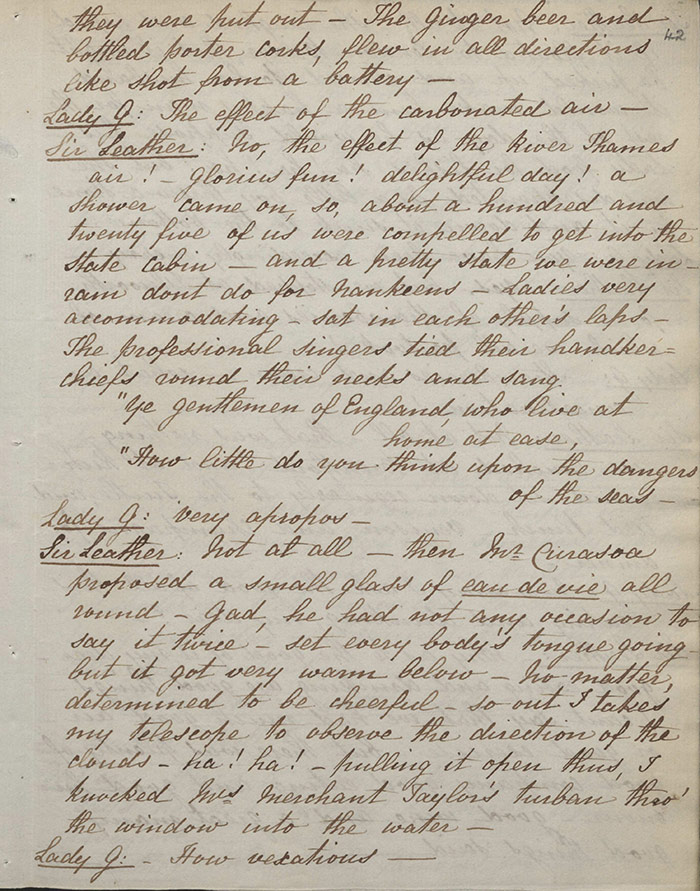 42
they were put out — The Ginger beer and
bottled porter corks, flew in all directions
like shot from a battery —
Lady G: The effect of the carbonated air —
Sir Leather: No, the effect of the River Thames
air! — glorius fun! delightful day! a
shower came on, so, about a hundred and
twenty five of us were compelled to get into the
state cabin — and a pretty state we were in —
rain dont do for nankeens — Ladies very
accommodating — sat in each other's laps —
The professional singers tied their handker=
chiefs round their necks and sang.
"Ye gentlemen of England, who live at
home at ease,
"How little do you think upon the dangers
of the seas —
Lady G: very apropos —
Sir Leather: Not at all — then Mr. Curasoa
proposed a small glass of eau de vie all
round — Gad, he had not any occasion to
say it twice — set every body's tongue going —
but it got very warm below — No matter,
determined to be cheerful — so out I takes
my telescope to observe the direction of the
clouds — ha! ha! — pulling it open thus, I
knocked Mrs Merchant Taylor's turban thro'
the window into the water —
Lady G: — How vexatious —